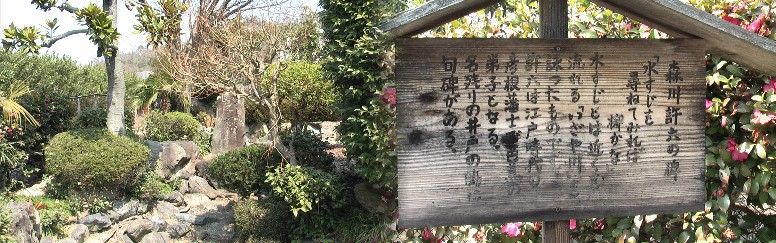 森川許六の碑
「水すじを
尋ねてみれば
柳かな」
水すじとは近く
流れる「いさや川」
詠ったものです。
許六は江戸時代の
彦根藩士で芭蕉の
弟子となる。
名残りの井戸の
句碑がある。